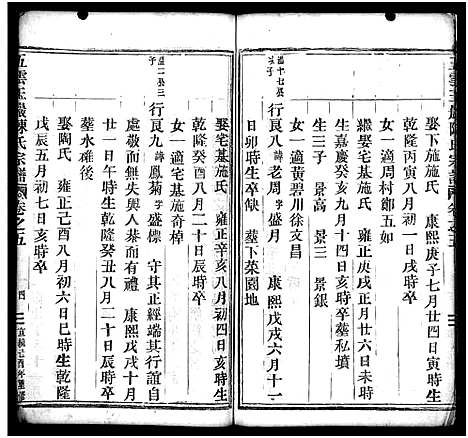 娶下施施氏 康熙庚子七月廿四日寅時生
乾隆丙寅八月初一日戌時卒
女一適周村鄭五如
繼娶宅基施氏 雍正庚戌正月廿六日未時
生嘉慶癸亥九月十四日亥時卒葬私墳
生三子 景高 景三 景銀
女一適黃碧川徐文昌
行良八 諱老周 字盛月 康熙戊戌六月十一
日卯時生卒缺 葬下菜園地
娶宅基施氏 雍正辛亥八月初四日亥時生
乾隆癸酉八月二十日辰時卒
女一適宅基施奇棹
盛二長三子
行良九 諱鳳菊 字盛標 守其正經端其行誼自
處敬而無失與人恭而有禮 康熙戊戌十月
廿一日午時生乾隆癸丑八月二十日辰時卒
葬水碓後
娶陶氏 雍正己酉八月初六日巳時生乾隆
戊辰五月初七日亥時卒
五雲玉巖陳氏宗譜 卷之五
四